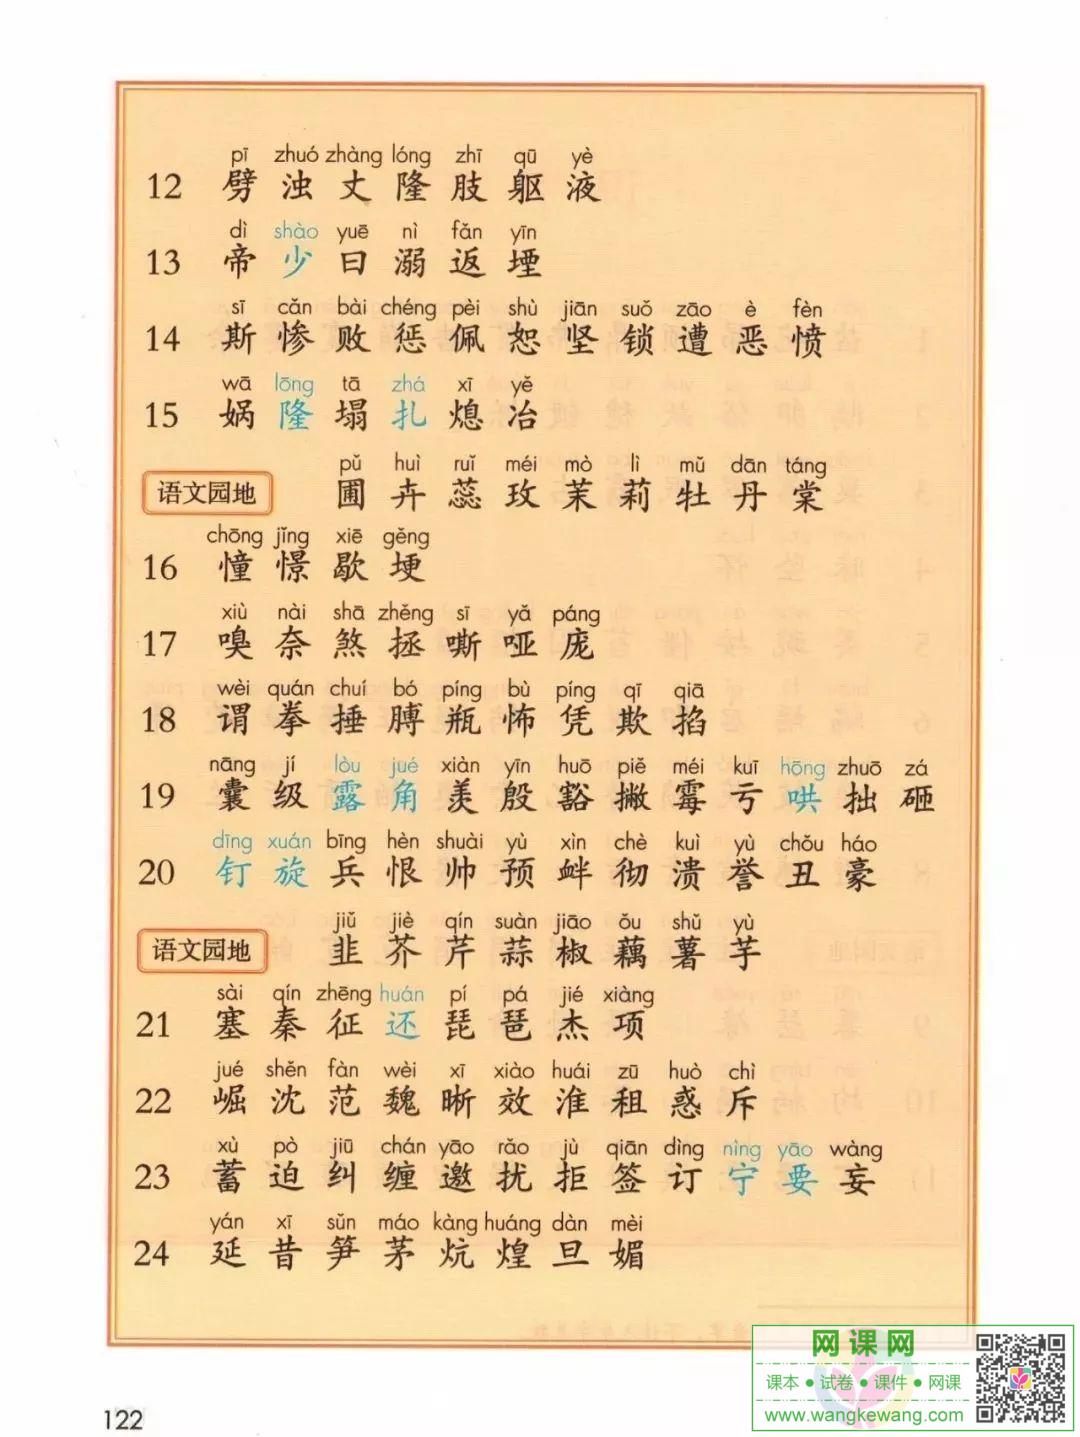 pī zhuó zhàng lóng zhī qū yè
12 劈 浊 丈 隆 肢 躯 液
dì shào yuē nì fǎn yīn
13 帝 少 曰 溺 返 堙
sī cǎn bài chéng pèi shù jiān suǒ zāo è fèn
14 斯 惨 败 惩 佩 恕 坚 锁 遭 恶 愤
wā lōng tā zhá xī yě
15 娲 隆 塌 扎 熄 冶
pǔ huì ruǐ méi mò lì mǔ dān táng
语文园地 圃 卉 蕊 玫 茉 莉 牡 丹 棠
chōng jǐng xiē gěng
16 憧 憬 歇 埂
xiù nài shā zhěng sī yǎ páng
17 嗅 奈 煞 拯 嘶 哑 庞
wèi quán chuí bó píng bù píng qī qiā
18 谓 拳 捶 膊 瓶 怖 凭 欺 掐
nāng jí lòu jué xiàn yīn huō piě méi kuī hōng zhuō zá
19 囊 级 露 角 羡 殷 豁 撇 霉 亏 哄 拙 砸
dīng xuán bīng hèn shuài yù xìn chè kuì yù chǒu háo
20 钉 旋 兵 恨 帅 预 衅 彻 溃 誉 丑 豪
jiǔ jiè qín suàn jiāo ǒu shǔ yù
语文园地 韭 芥 芹 蒜 椒 藕 薯 芋
sài qín zhēng huán pí pá jié xiàng
21 塞 秦 征 还 琵 琶 杰 项
jué shěn fàn wèi xī xiào huái zū huò chì
22 崛 沈 范 魏 晰 效 淮 租 惑 斥
xù pò jiū chán yāo rǎo jù qiān dìng nìng yāo wàng
23 蓄 迫 纠 缠 邀 扰 拒 签 订 宁 要 妄
yán xī sǔn máo kàng huáng dàn mèi
24 延 昔 笋 茅 炕 煌 旦 媚
122
网课网
课本●试卷●课件●网课
www.wangkewang.com